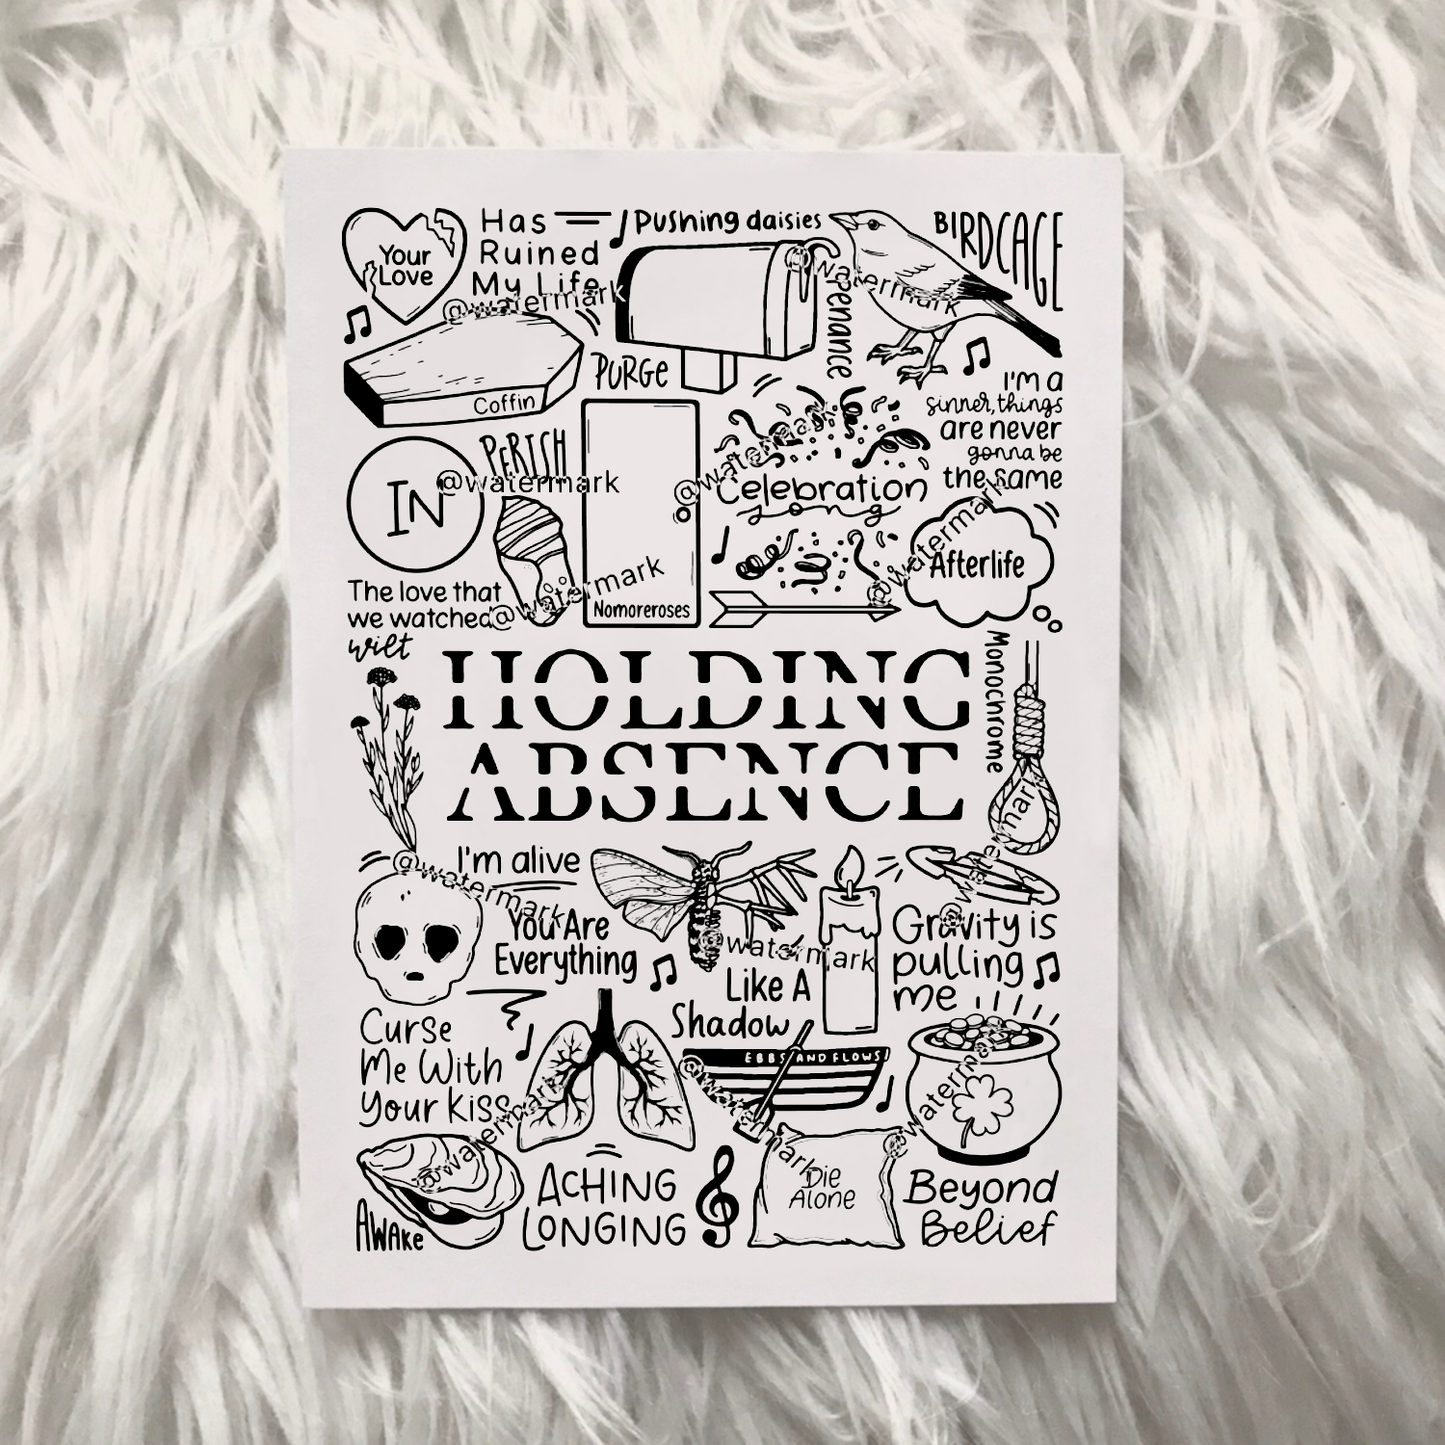 Your
Love
Has
Ruined
My Life
Pushing daisies
BIRDCAGE
@watermark
@watermark
Penance
PURGE
Coffin
I'm a
sinner, things
are never
gonna be
the same
PERISH
IN
@watermark
@watermark
Celebration
song
@watermark
Afterlife
The love that
we watched
wilt
@watermark
Nomoreroses
HOLDING
ABSENCE
Monochrome
@watermark
I'm alive
@watermark
You Are
Everything
@watermark
Like A
Shadow
Gravity is
pulling
me
Curse
Me With
Your Kiss
EBBS AND FLOWS
@watermark
@watermark
@watermark
Awake
ACHING
LONGING
Die
Alone
Beyond
Belief